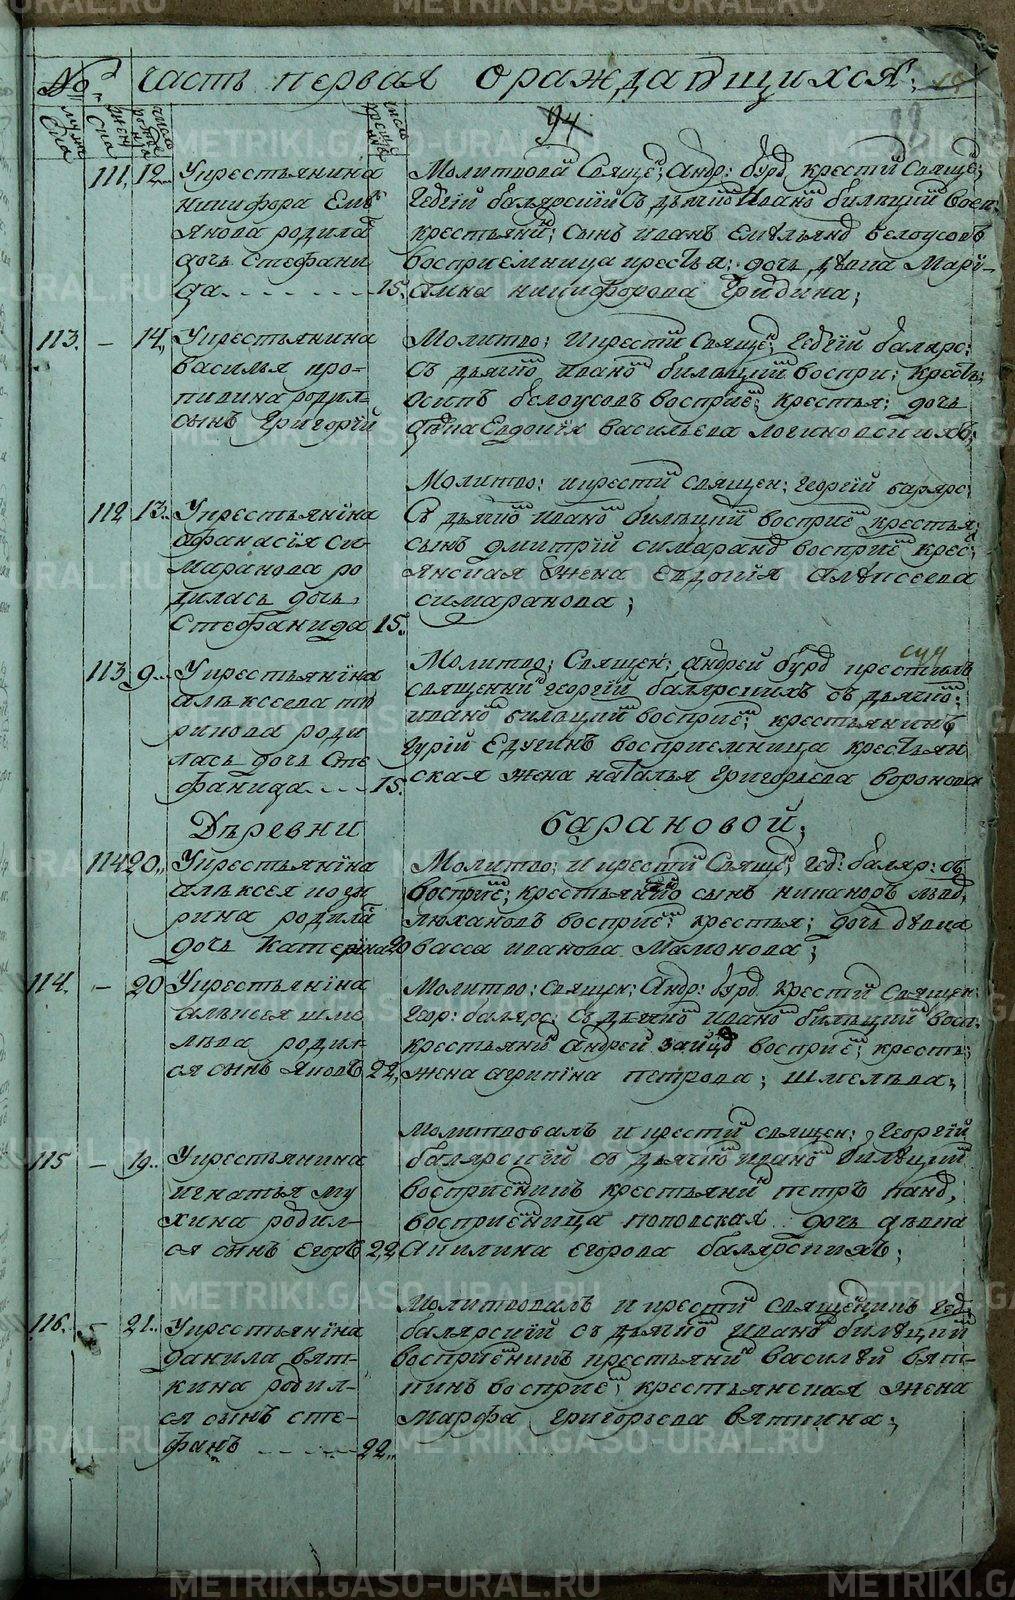 № Часть первая о раждающихся;
94
111. 12. У крестьянина
никифора Емѣ
янова родила
дочь Стефани
да 15.
Молитвовал Священ; Андр: бурд крестил Священ;
Геѡргiй балярскiй Съ дьячкомъ Иваномъ билицкимъ воспр:
крестьянин; сынъ иванъ Емѣльянъ белоусовъ
восприемница крестья: дочь девка Марi-
амна никифорова Гридина;
113. – 14. У крестьянина
василья про-
родил
сынъ Григорiй
Молитво; И крестил Священ; Геѡргiй балярс:
Съ дьячкомъ иваномъ билицкимъ воспри: кресть:
осипъ белоусовъ восприем; крестья; дочь
дѣвка Евдокiя васильева
Молитво: и крестил священ; Георгiй балярс:
112 13. У крестьянiна
афанасiя си-
маранова ро
дилась дочь
Стефанида 15.
Съ дьячкомъ иваномъ билицкимъ восприем крестья;
сынъ дмитрiй симаранъ восприем крес:
янская жена евдокiя алѣксеева
симаранова;
113 9. У крестьянiна
алѣксеева
ринова роди
лась дочь Сте
фанида 15.
Молитво; Священ; андрей бурд крестилъ
священник георгiй балярскихъ съ дьячко:
иваном билицкий восприем; крестьянинъ
гурiй Едугинъ восприемница крестьян
ская жена наталья григорьева воронова
Деревни барановой;
114 20. У крестьянiна
алѣксея
рина родила
дочь катерiна 20
Молитво; и крестил Священ; Геѡ: баляр: съ
восприем; крестьянина сынъ никаноръ
восприем: крестья; дочь девка
васса иванова Мамонова;
114. – 20 У крестьянiна
алѣксея шме
лѣва родил-
ся сынъ яковъ 22.
Молитво: священ: Андр: бурд крестил Священ:
Геор: балярс: Съ дьячком иваном билицким восп:
крестьянин андрей зайцъ восприем; кресть;
жена агрипiна петрова; шмелѣва;
115 – 19. У крестьянина
игнатья му
хина родил-
ся сынъ егоръ 22
молитвовалъ и крестил священ: Георгiй
балярскiй съ дьячком иваном билицкий
восприемникъ крестьянин петръ
восприемница поповская дочь девка
Акилина егорова балярскихъ;
116. 21. У крестьянiна
данила вят-
кина родил-
ся сынъ сте-
фанъ 22.
Молитвовалъ и крестил священникъ Геѡр.
балярскiй съ дьячком иваном билицкий
восприемникъ крестьянин василей вят-
кинъ восприем; крестьянская жена
марфа григорьева вяткина;
METRIKI.GASO-URAL.RU